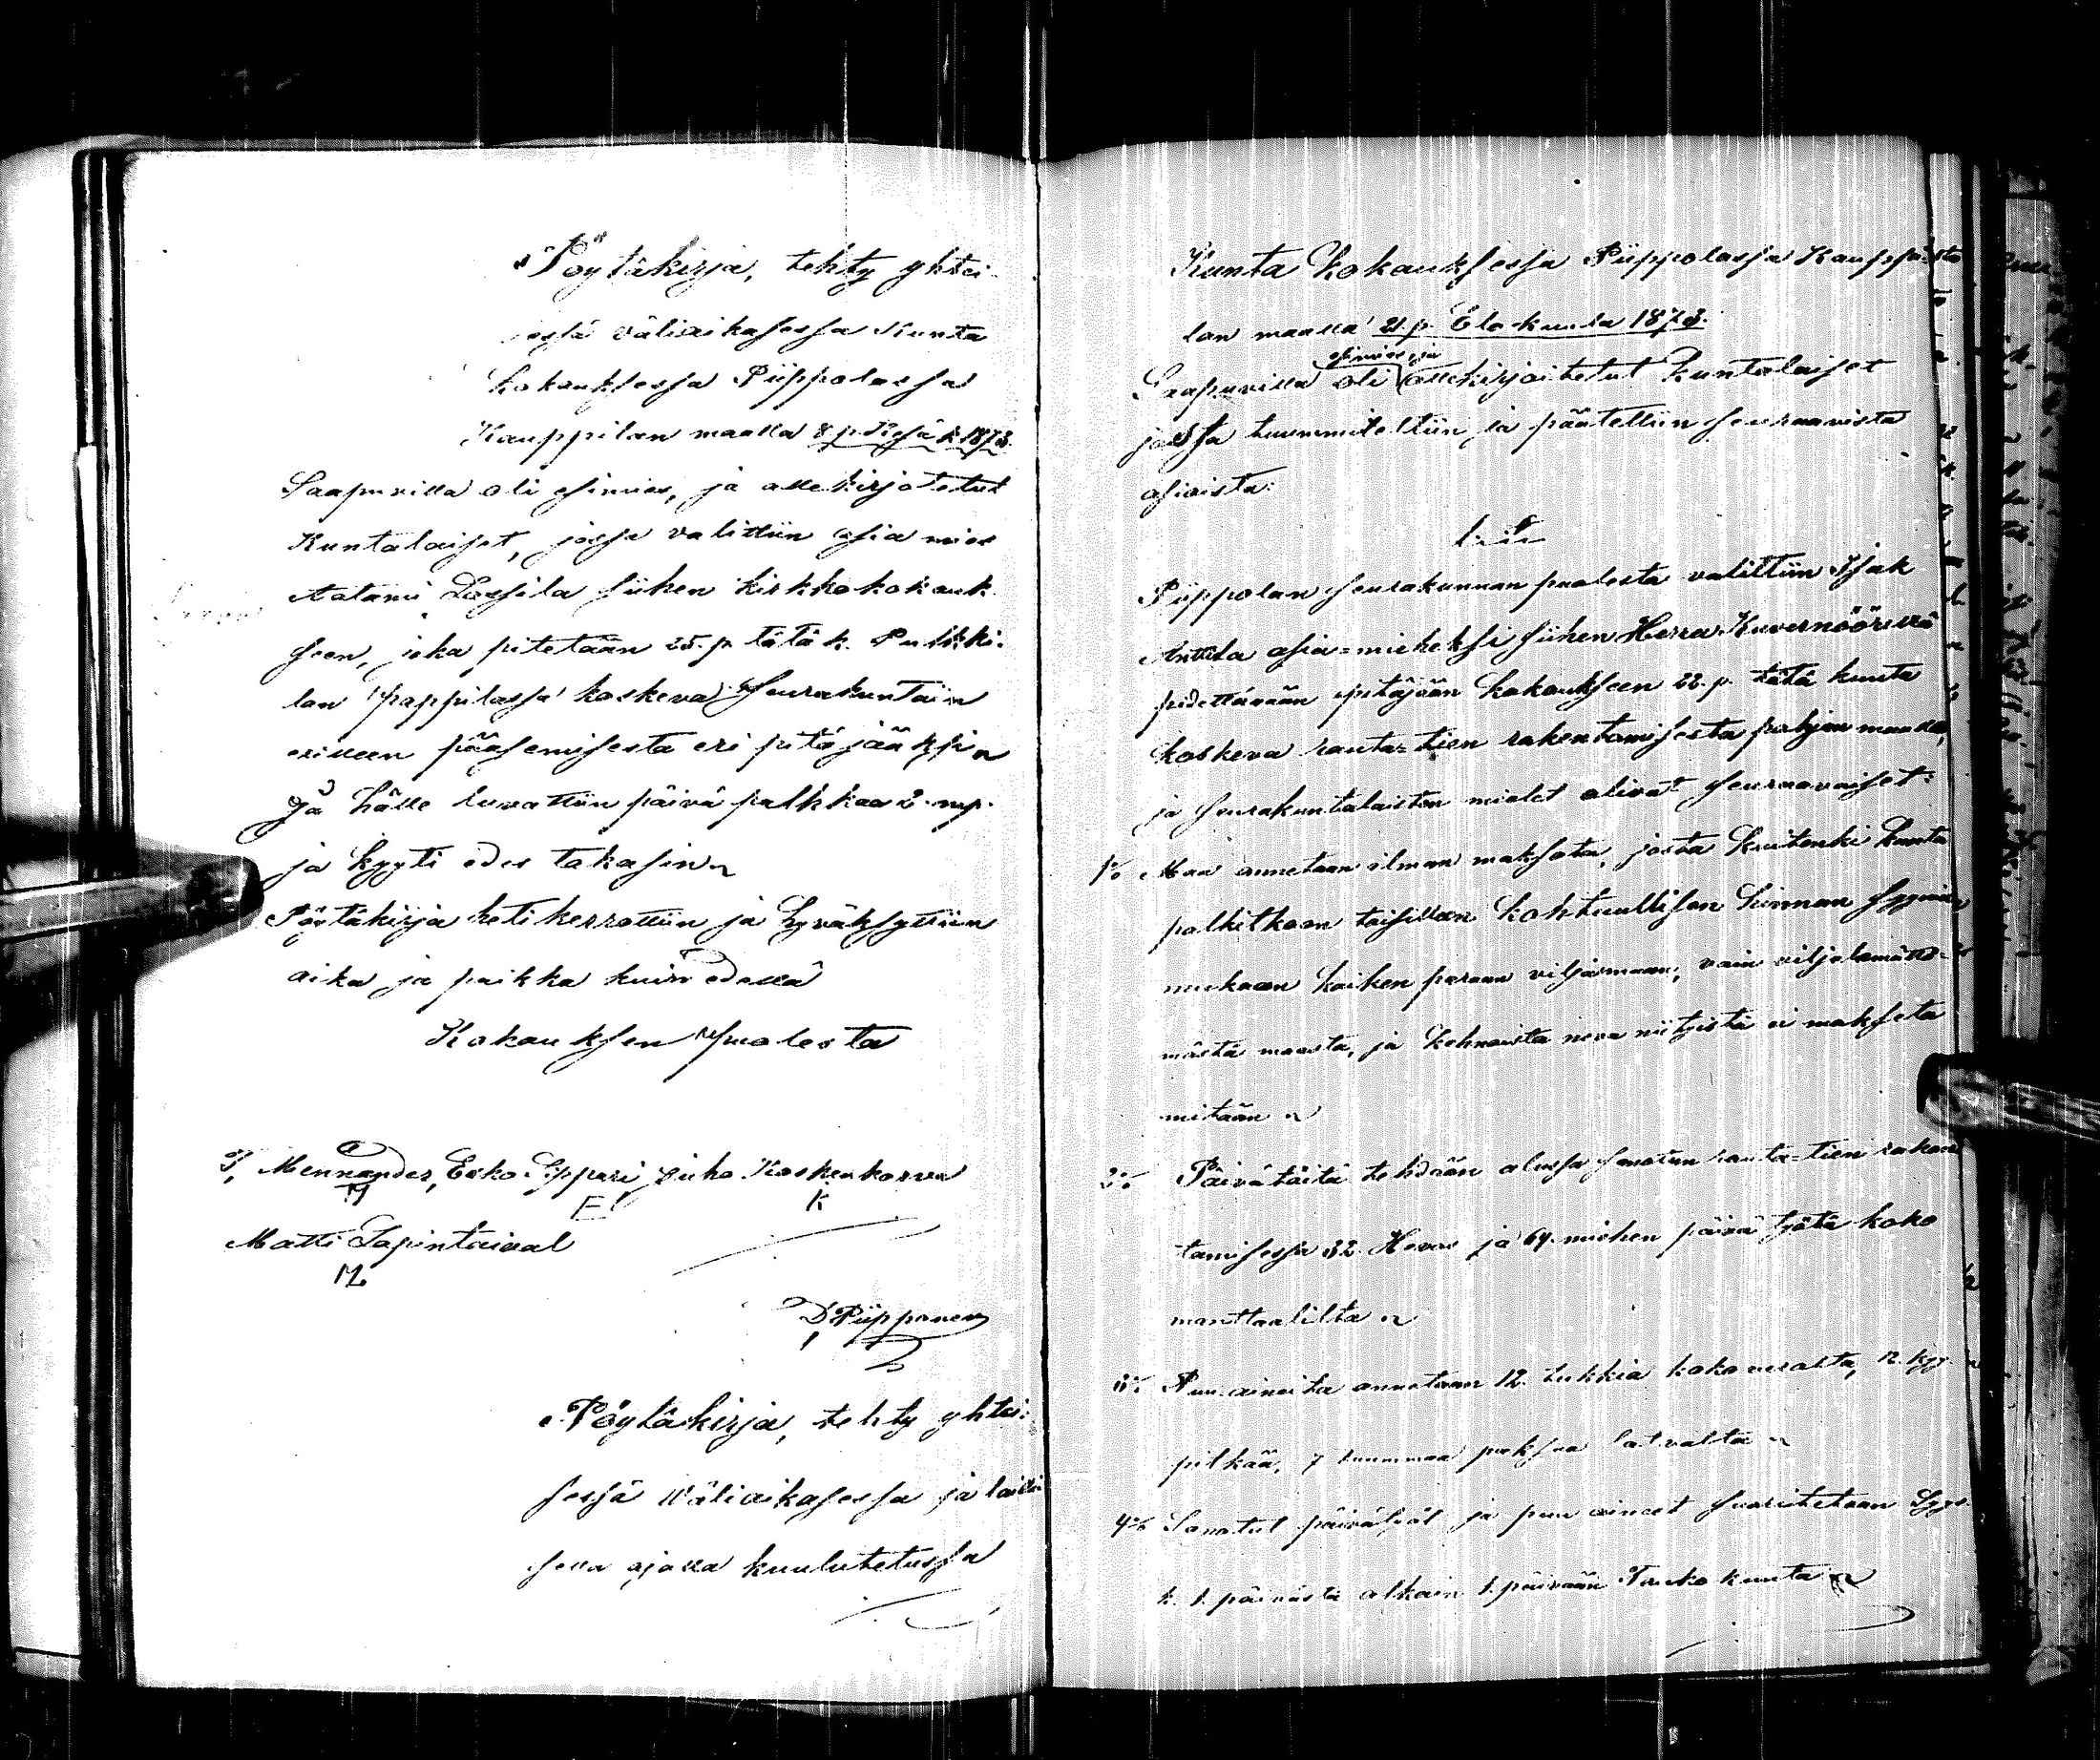 Pöytäkirja, tehty yhtei-
sessä väliaikasessa Kunta
kokauksessa Piippolassa
Kauppilan maalla 8 p. Kesä k. 1873.
Saapuvilla oli esimies, ja allekirjotetut
Kuntalaiset, jossa valittiin asia mies
Aatami Lassila siihen kirkkokokauk
seen, joka pitetään 25. p. tätä k. Pulkki-
lan pappilassa koskeva Seurakuntain
erilleen pääsemisestä eri pitäjääksi
Ja hälle luvattiin päivä palkkaa 2. mp.
ja kyyti edes takasin
Pöytäkirja heti kerrottiin ja hyväksyttiin
aika ja paikka kuin edellä
Kokauksen puolesta
Mennander, Esko Sippari, Juho Koskenkorva
M E K
Matti Lapintaival
M
D. Piipponen
Pöytäkirja, tehty yhtei-
sessä Väliaikasessa ja lailli
sella ajalla kuulutetussa
Kunta kokauksessa Piippolassa Kauppi
lan maalla 21 p. Elo-kuuta 1873.
esimies, ja
Saapuvilla oli allekirjoitetut Kuntalaiset
jossa tuummiteltiin ja päätettiin seuraavista
asioista:
1. §.
Piippolan seurakunnan puolesta valittiin Isak
Anttila asia-mieheksi siihen Herra Kuvernööriltä
pidettävään pitäjään kokoukseen 22. p. tätä kuuta
koskeva rauta-tien rakentamisesta pohjan maalla,
ja seurakuntalaisten mielet olivat seuraavaiset:
1:o Maa annetaan ilman maksota, josta kuitenki Kunta
palkitkoon taisillaan kohtuullisen hinnan syynin
mukaan kaiken paraan viljavmaan, vain viljelemättö-
mästä maasta, ja kehnoista neva niityistä ei makseta
mitään
2:o Päivätöitä tehdään alussa sanotun rauta-tien raken
tamisessa 32. Hevos ja 64. miehen päivä työtä koko
manttaalilta
3:o Puu-aineita annetaan 12. tukkia kokoverolta, 12. kyy.
pitkää, 7 tuummaa paksua latvalta
4:o Sanotut päivätyöt ja puu aineet suoritetaan Syys
k. 1. päivästä alkain 1. päivään Touko kuuta